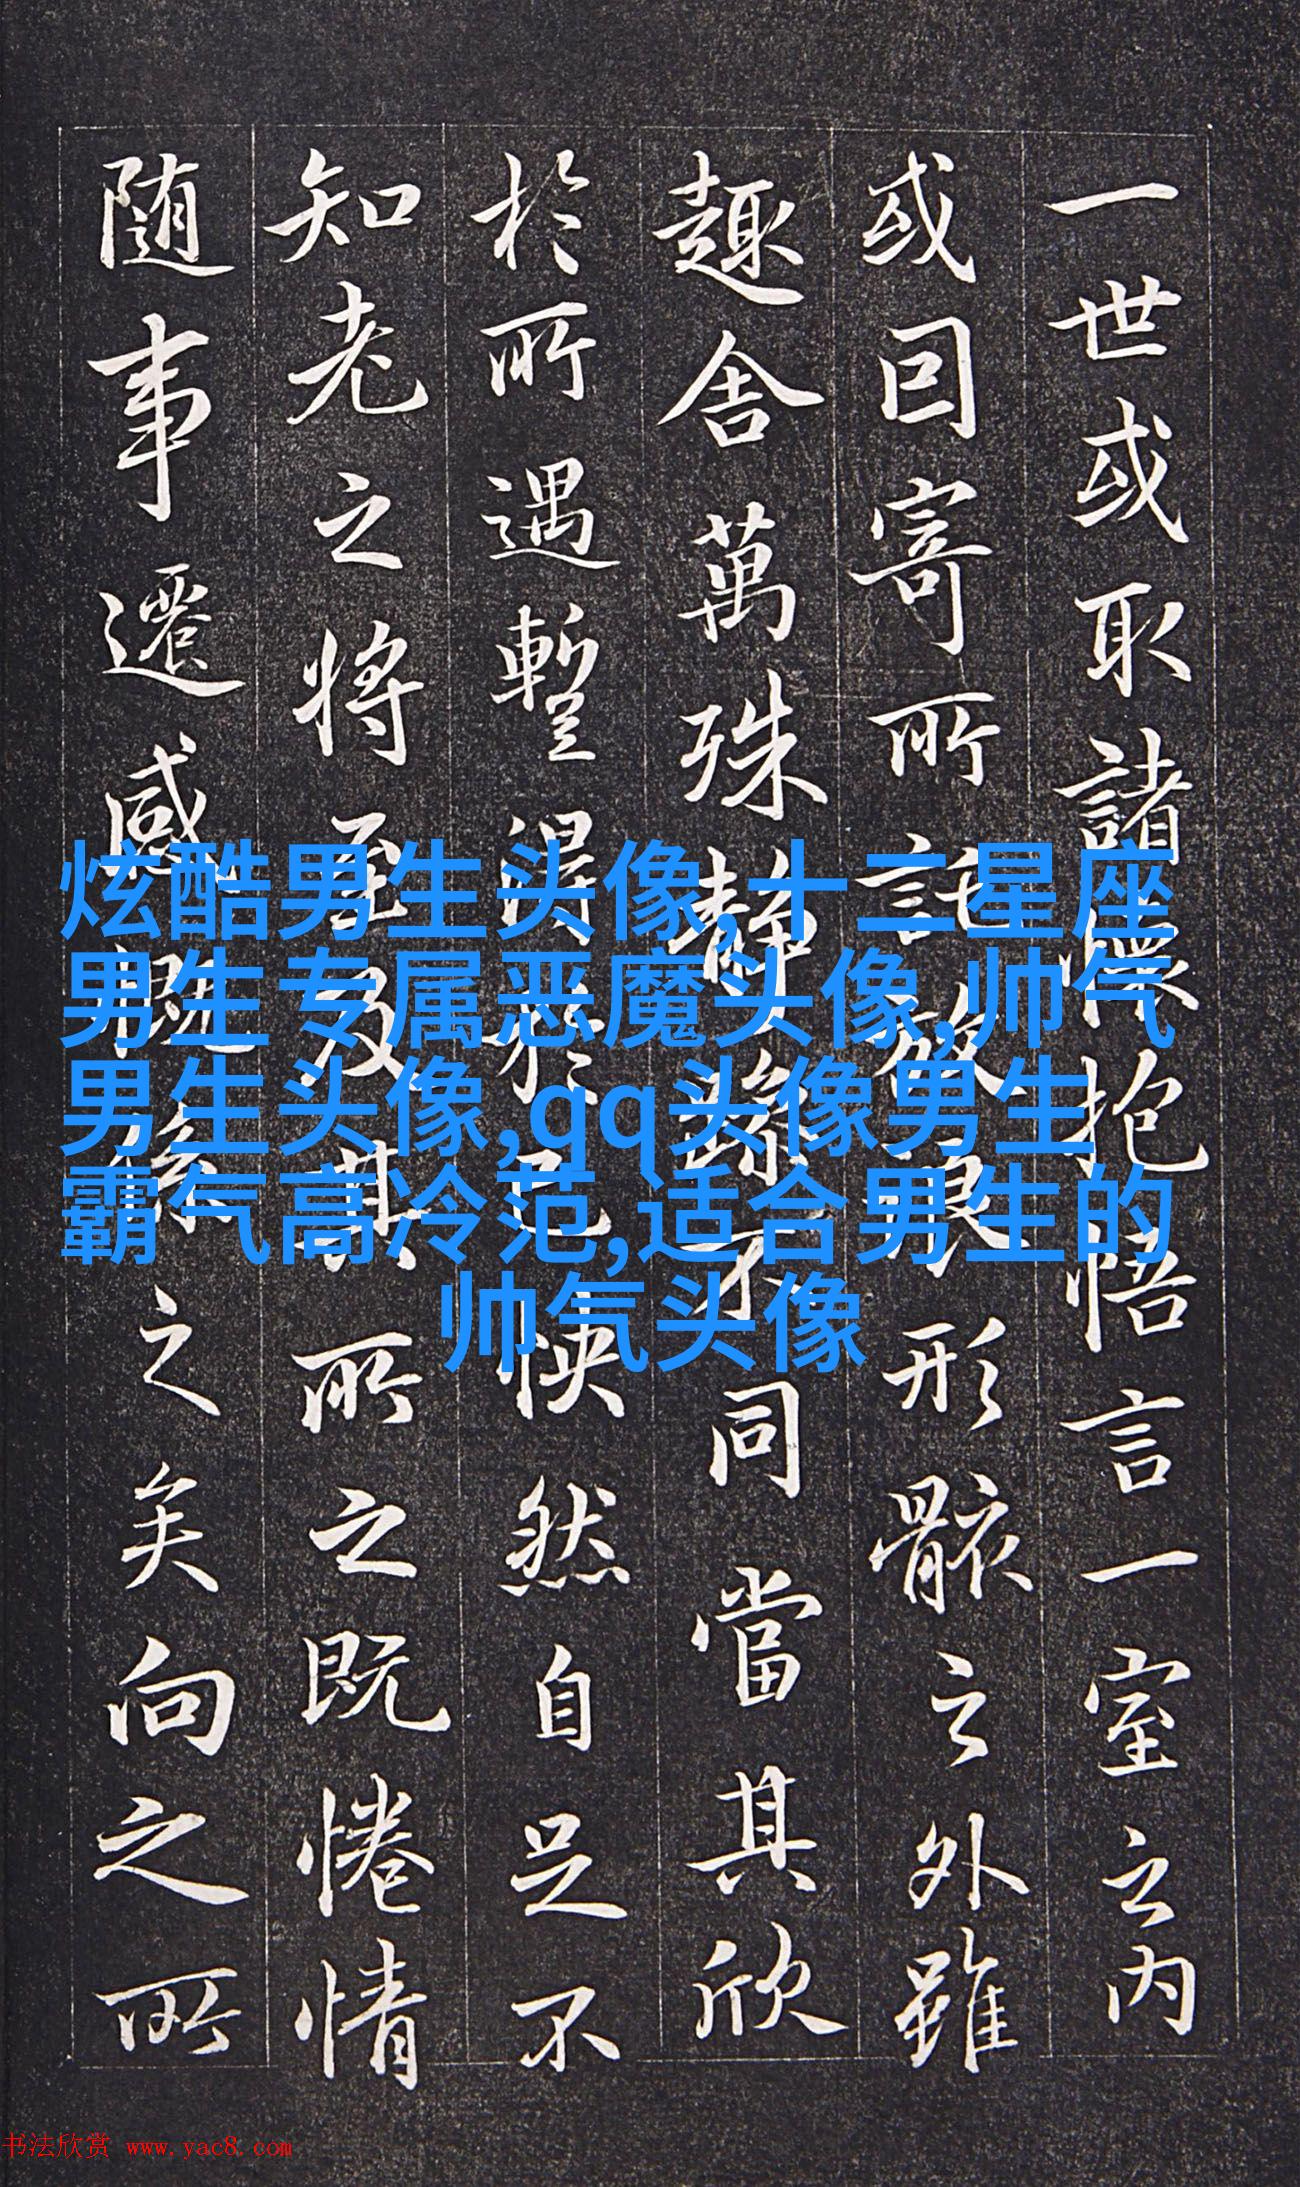 一世或取諸懷抱悟言一室之内
或囙寄所託放浪形骸之外雖
趣舍萬殊静躁不同當其欣
於所遇暫得於己怏然自足不
知老之將至及其所之既惓情
随事遷感慨係之矣向之所
炫酷男生头像,十二星座
男生专属恶魔头像,帅气
男生头像,qq头像男生
霸气高冷范,适合男生的
帅气头像
书法欣赏 www.yac8.com